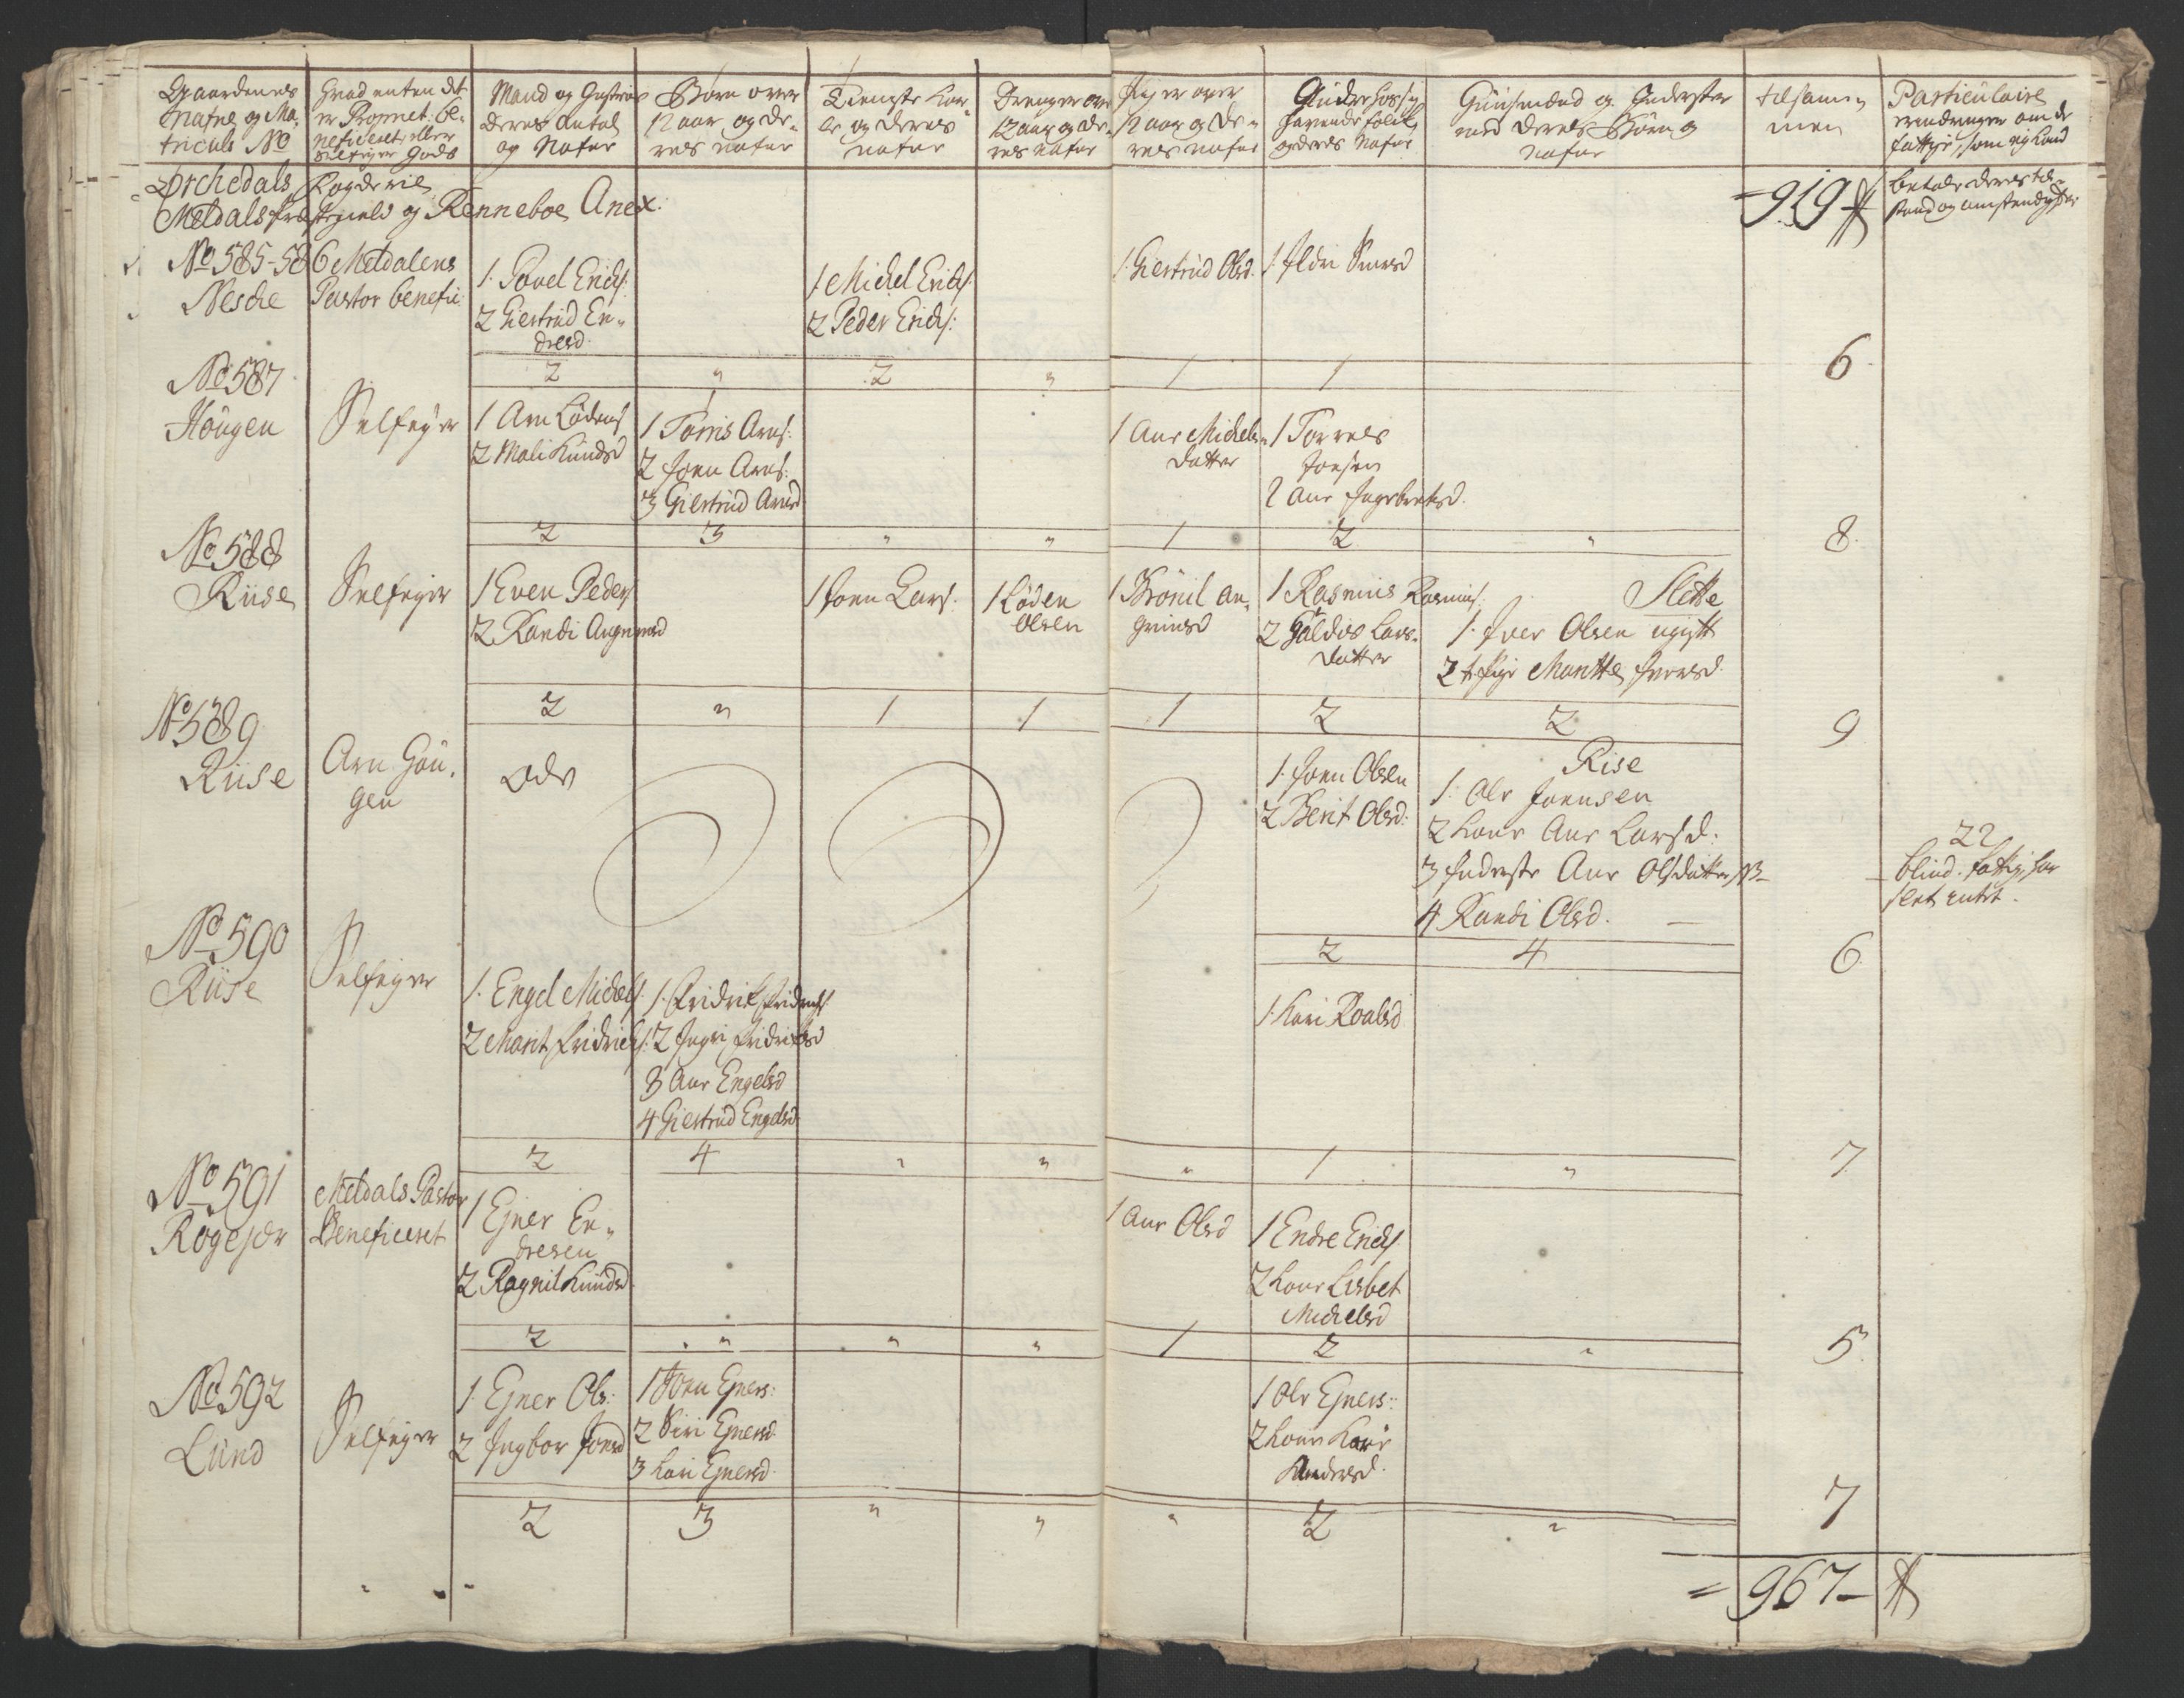 Gaardenes Nafne og Ma-
triculs No
Hvad enten det
er Propriet: be-
neficeret eller
Selfejer Gods
Mand og Hustrue
Deres Antal
og Nafne
Børn over
12 aar og de-
res nafne
Tieneste Kar-
le og deres
nafne
Drenge over
12 aar og de-
res Nafne
Piger over
12 aar og de-
res nafne
Andre hos sig
havende folck
og deres Nafne
Huusmænd og Inderster
med deres Børn og
nafne
tilsam-
men
Particulaire
om de
fattige, som ej kand
betale deres til-
stand og omstendigheder
Orchedals Fogderie
Meldals Præstegield og Renneboe Anex.
= 919
No 585-586
Nesche
Meldalens
Pastor benefic:
1. Povel Erichs:
2 Giertrud En-
dresd.
1 Michel Erichs:
2 Peder Erichs:
1. Giertrud Olsd.
1. Ildri
2 " 2 " 1 1
6
No 587
Hougen
Selfejer
1 Arn Lodens
2 Mali Knudsd
1 Tomis Arns:
2 Joen Arns:
3 Giertrud Arnsd
1 Ane Michels-
datter
1 Torres
Joensen
2 Ane Ingebretsd.
2 3 " " 1 2 "
8.
No 588
Riise
Selfejer
1 Even Peders
2 Randi
1 Joen Lars:
1 Loden
Olsen
1 Brönil An-
grimsd
1 Rasmus Rasmus:
2 Goldis Lars-
datter
Slette
1. Iver Olsen ugift
2 t: Pige Maritte Iversd.
2 " 1 1 1 2 2
9
No 589
Riise
Arn Hou-
gen
Øde
1. Joen Olsen
2 Berit Olsd:
Rise
1. Ole Joensen
2 kone Ane Larsd:
3 Inderste Ane Olsdatter NB
4 Randi Olsd.
22
blind. fattig, har
slet intet.
2 4
6
No 590
Riise
Selfejer
1. Engel Michels:
2 Marit Fridrichs:
1. Fridrik Fridrichs:
2 Ingri Fridriksd
3 Ane Engelsd
4 Giertrud Engelsd
1. Kari Roalsd
2 4 " " " 1 "
7
No 591
Rogesær
Meldals Pastor
Beneficeret
1 Ejner En-
dresen
2 Ragnil Knudsd.
1 Ane Olsd
1 Endre Erichs:
2 kone Lisbet
Michelsd
2 " " " 1 2 "
5.
No 592
Lund
Selfejer
1. Ejner Ols:
2 Ingbor Jonsd
1 Joen Ejners:
2 Siri Ejnersd
3 Kari Ejnersd.
1 Ole Ejners:
2 kone Kari
Andersd.
2 3 " " " 2 "
7
= 967